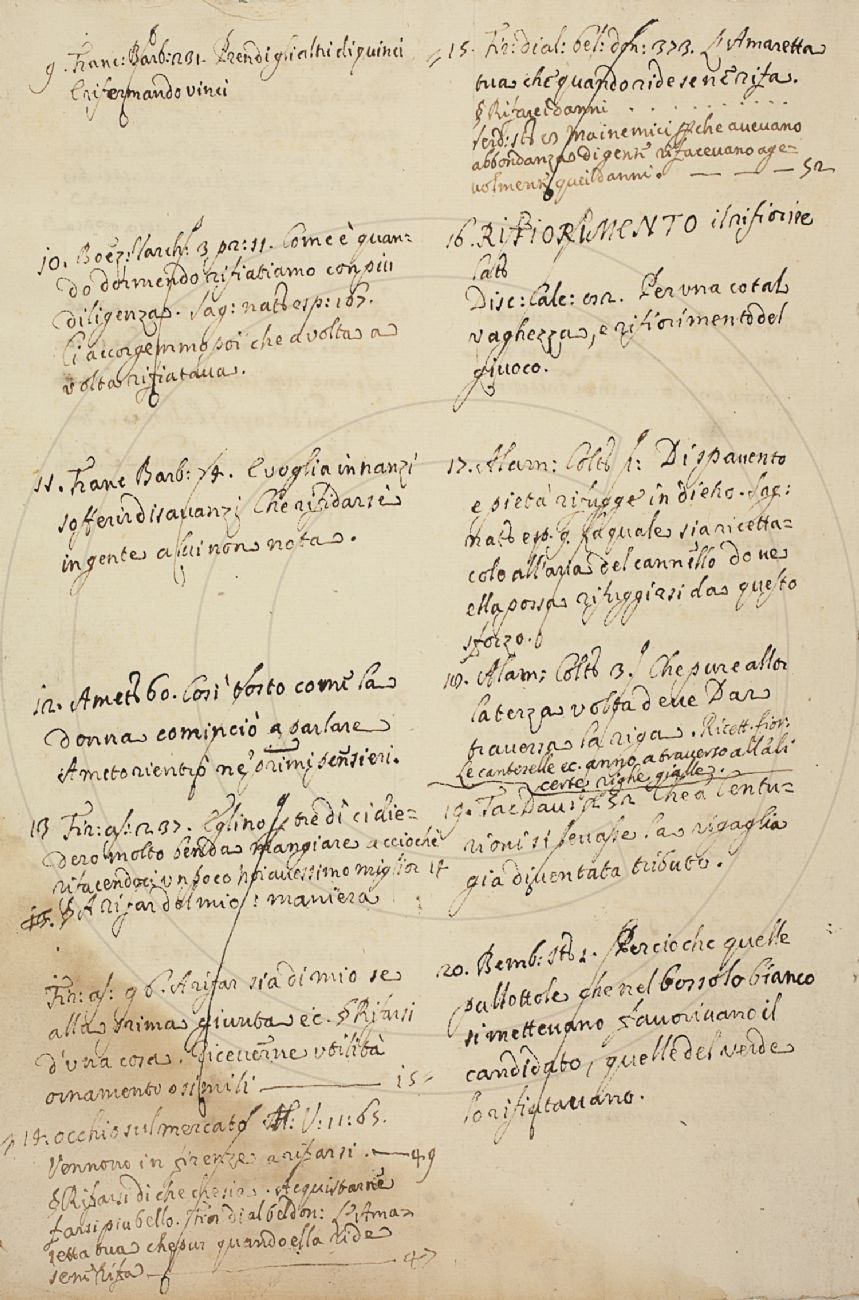 9. Franc: Barb: 231. Prendi gli altri di quinci
E rifermando vinci
10. Boez: Varch: 3 pr: 11. Come è quan=
do dormendo rifiatiamo con più
diligenza. Sag: nat esp: 167.
Ci accorgemmo poi che a volta a
volta rifiatava.
11. Franc Barb: 74. E voglia innanzi
sofferir disavanzi Che rifidarsi
in gente a lui non nota.
12. Amet 60. Così tosto come la
donna cominciò a parlare
Ameto rientrò ne' primi pensieri.
13 Fir: as: 237. Egli no tre dì ci die=
dero molto ben da mangiare acciochè
rifacendoci un poco noi avessimo miglior 14
15. § A rifar del mio: maniera
Fir: as: 96. A rifar sia di mio se
alla prima giunta ec. § Rifarsi
d'una cosa. Riceverne utilità
ornamento o simili — 15
14: occhio sul mercato M: V: 11: 65.
Vennono in firenze a rifarsi. — 49
§ Rifarsi di che che sia. Acquistarne
farsi più bello. Fior dial bel don: L'Ama=
retta tua che pur quando ella ride
se ne rifà — 47
15. Fir: dial: bel: don: 373. L'Amaretta
tua che quando ride se ne rifà.
§ Rifare i danni . . . . . . . . . .
Serd: st Ma i nemici che avevano
abbondanza di gente rifacevano age=
volmente quei danni. — — — 52
16. RIFIORIMENTO il rifiorire
Lat
Disc: Calc: 22. Per una cotal
vaghezza, e rifiorimento del
giuoco.
17. Alam: Colt 1: Di spavento
e pietà rifugge in dietro. Sag:
nat esp. 9. La quale sia ricetta=
colo all'aria del cannello dove
ella possa rifuggirsi da questo
sforzo.
18. Alam; Colt 3. Che pure allor
la terza volta deve Dar
traversa la riga. Ricett. fior:
Le cantarelle ec. anno a traverso all'ali
certe righe gialle.
19. Tac Dav: 52 Che a Centu=
rioni si levasse la rigaglia
già diventata tributo.
20. Bemb: st 1. Percioche quelle
pallottole che nel bossolo bianco
si mettevano favorivano il
candidato, quelle del verde
lo rifiutavano.